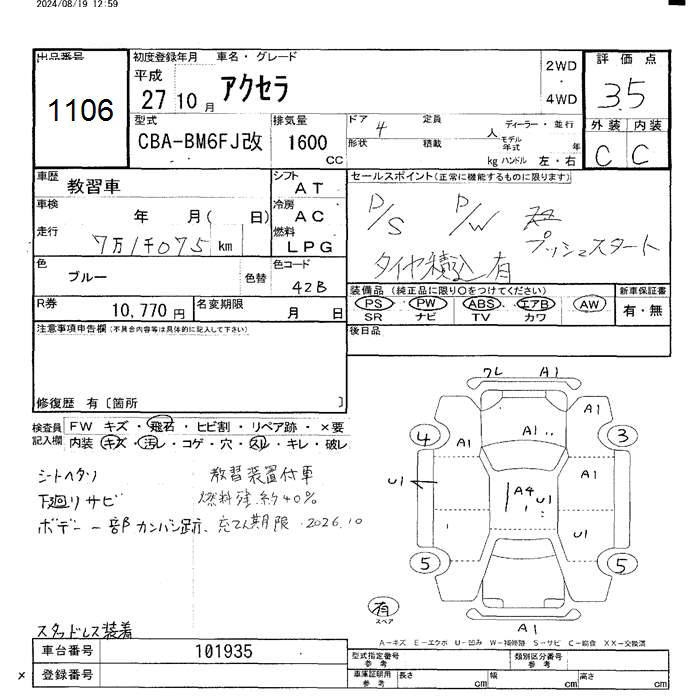 2024/08/19 12:59
出品番号
1106
初度登録年月 車名・グレード
平成
27 10 月 アクセラ
2WD
・
4WD
評価点
3.5
外装 内装
C C
型式
CBA-BM6FJ改
排気量
1600
CC
ドア 4 定員 人 ディーラー・並行
形状 積載 kg モデル年式 年
ハンドル 左・右
車歴
教習車
シフト
AT
車検
年 月( 日)
冷房
AC
走行
7万1千075 km
燃料
LPG
色
ブルー
色替
色コード
42B
R券
10,770 円
名変期限
月 日
セールスポイント(正常に機能するものに限ります)
P/S P/W
プッシュスタート
タイヤ積込 有
装備品 (純正品に限り○をつけてください)
PS PW ABS エアB AW
SR ナビ TV カワ
新車保証書
有・無
後日品
注意事項申告欄(不具合内容等は具体的に記入して下さい)
修復歴 有〔箇所 〕
検査員
記入欄
FW キズ・飛石・ヒビ割・リペア跡・×要
内装・キズ・汚レ・コゲ・穴・スレ・キレ・破レ
シートヘタリ 教習装置付車
下廻リサビ 燃料残約40%
ボデー一部カンバン跡、充てん期限 2026.10
スタッドレス装着
ワレ A1
A1
4 A1 A1 3
A1
U1 A4 U1
U1
5 5
有
スペア
A1
A-キズ E-エクボ U-凹み W-補修跡 S-サビ C-腐食 XX-交換済
車台番号
101935
× 登録番号
型式指定番号
参考
類別区分番号
参考
車庫証明用
参考
長さ cm 幅 cm 高さ cm